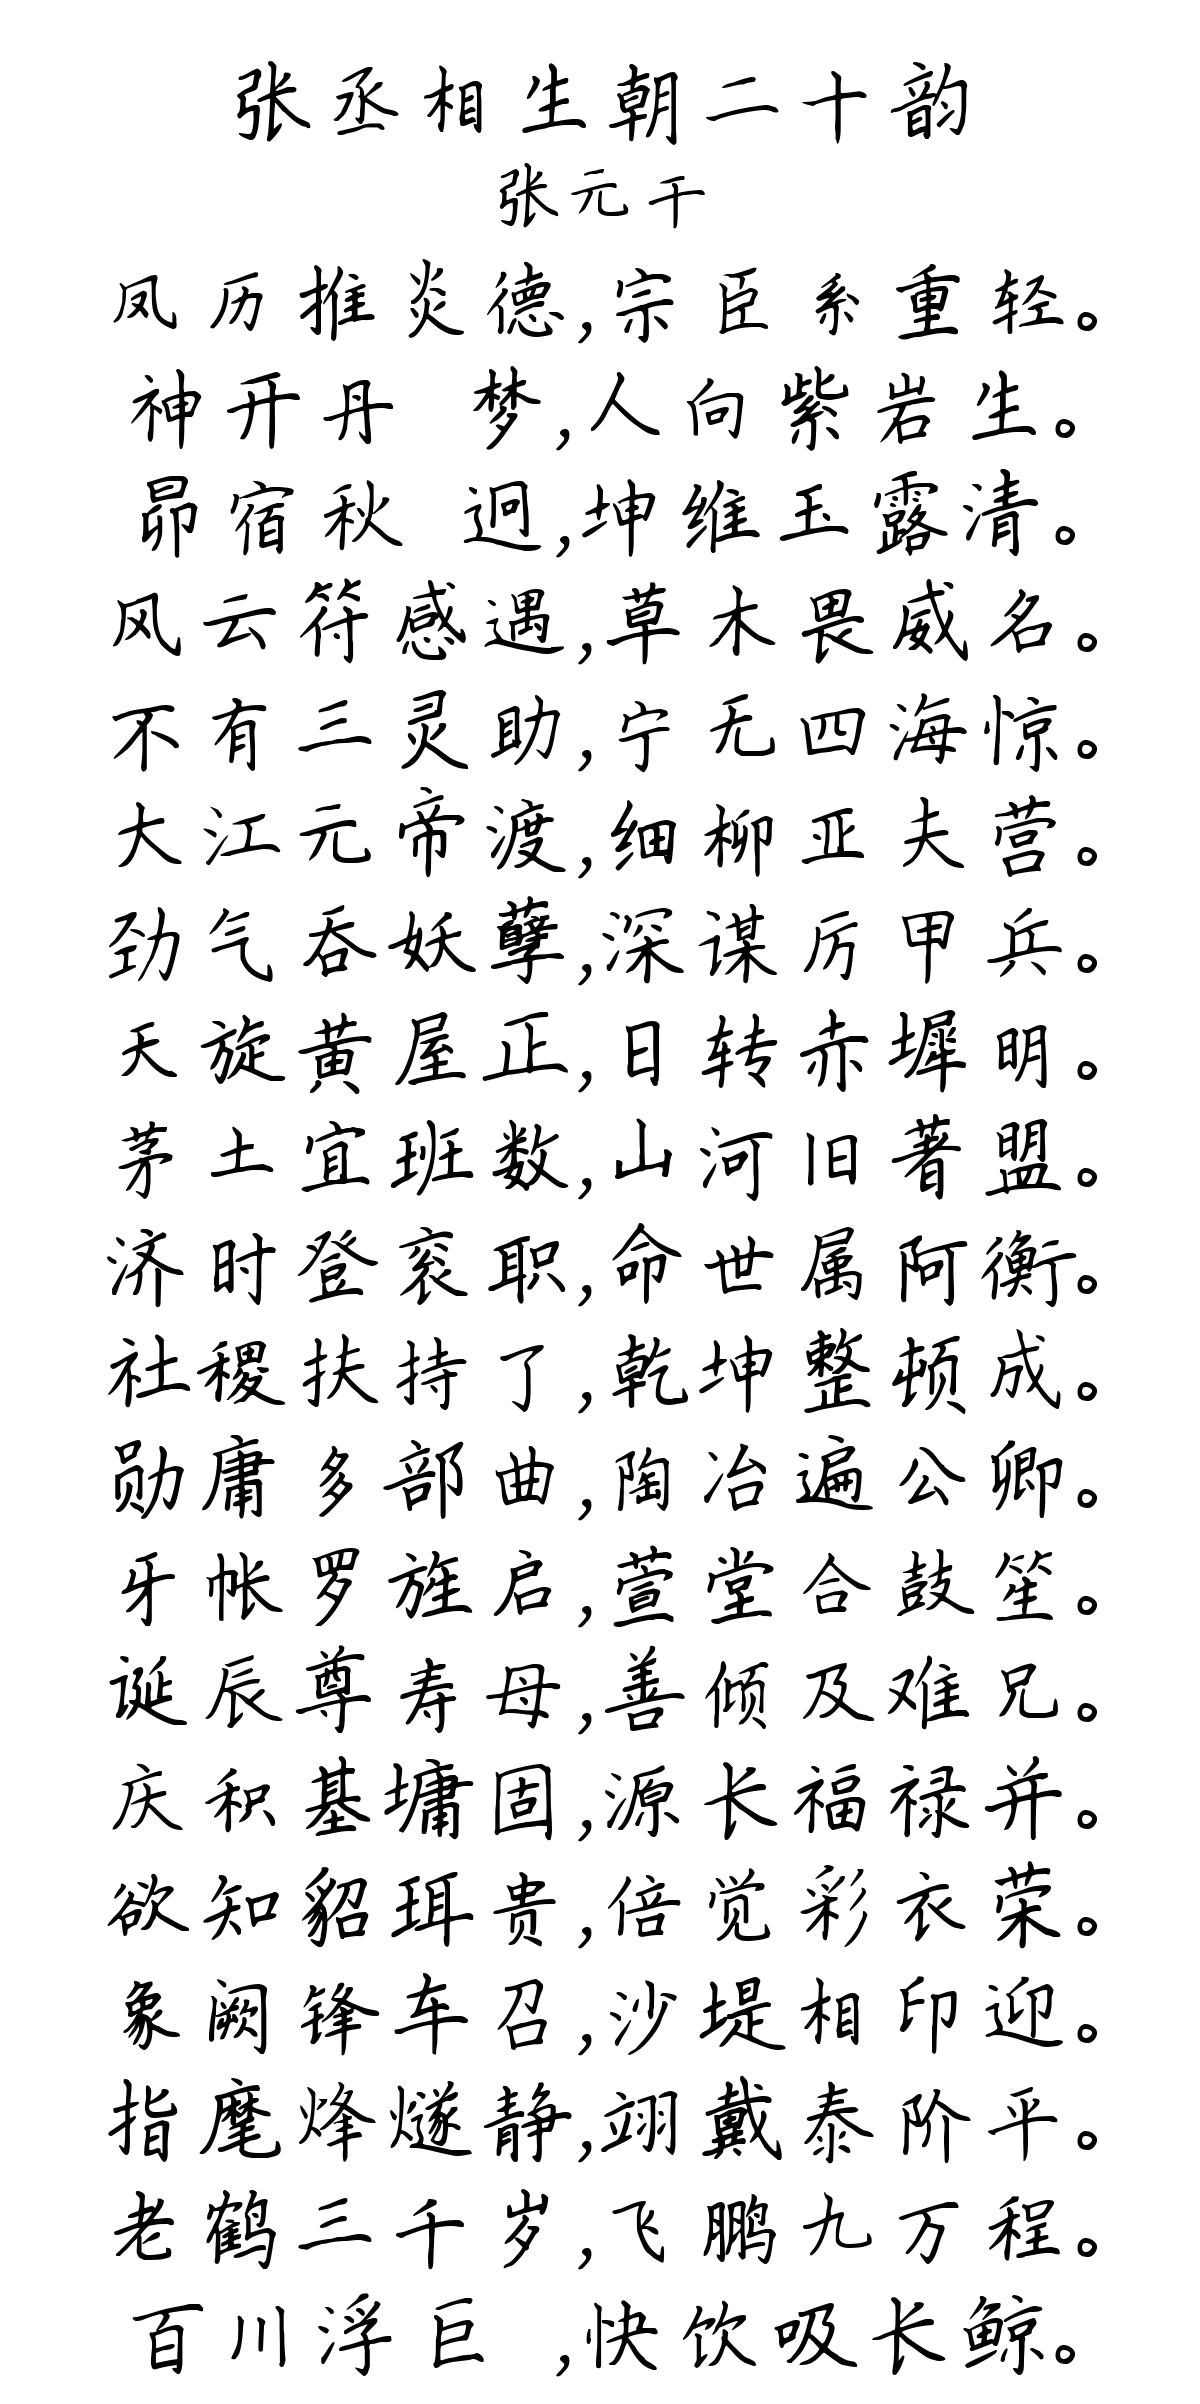 张丞相生朝二十韵
张元干
凤历推炎德,宗臣系重轻。
神开丹 梦,人向紫岩生。
昴宿秋 迥,坤维玉露清。
风云符感遇,草木畏威名。
不有三灵助,宁无四海惊。
大江元帝渡,细柳亚夫营。
劲气吞妖孽,深谋厉甲兵。
天旋黄屋正,日转赤墀明。
茅土宜班数,山河旧著盟。
济时登衮职,命世属阿衡。
社稷扶持了,乾坤整顿成。
勋庸多部曲,陶冶遍公卿。
牙帐罗旌启,萱堂合鼓笙。
诞辰尊寿母,善倾及难兄。
庆积基墉固,源长福禄并。
欲知貂珥贵,倍觉彩衣荣。
象阙锋车召,沙堤相印迎。
指麾烽燧静,翊戴泰阶平。
老鹤三千岁,飞鹏九万程。
百川浮巨 ,快饮吸长鲸。